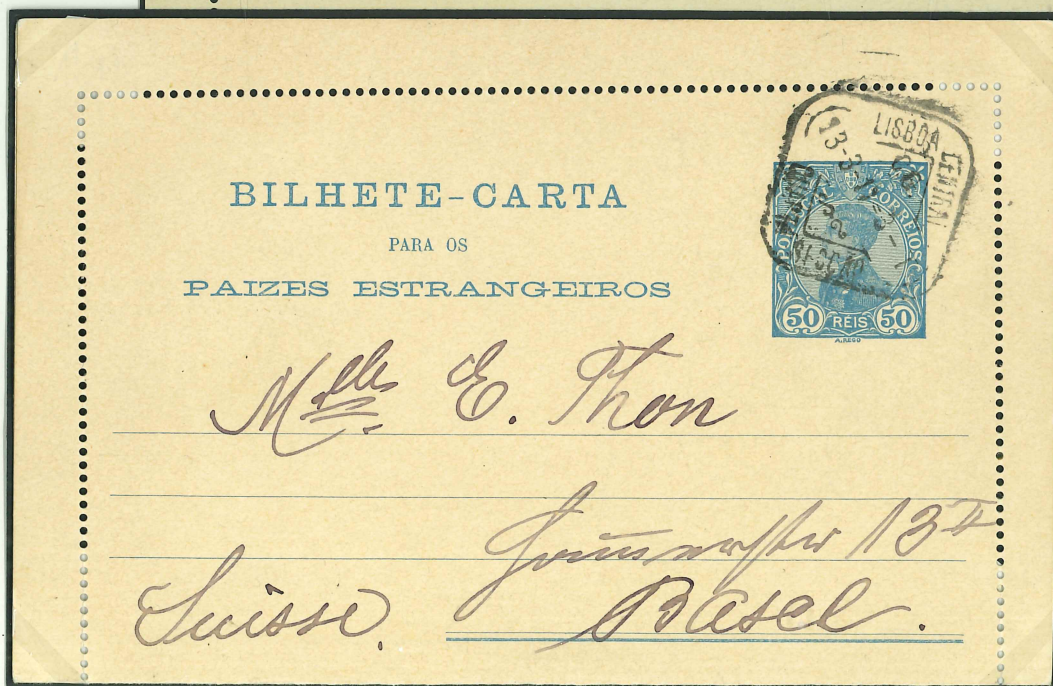 BILHETE-CARTA
PARA OS
PAIZES ESTRANGEIROS
LISBOA CENTRAL
13-3-
SECÇÃO
CORREIOS
50 RÉIS 50
A.REGO
Mlle E. Thon
13 II
Suisse. Basel.